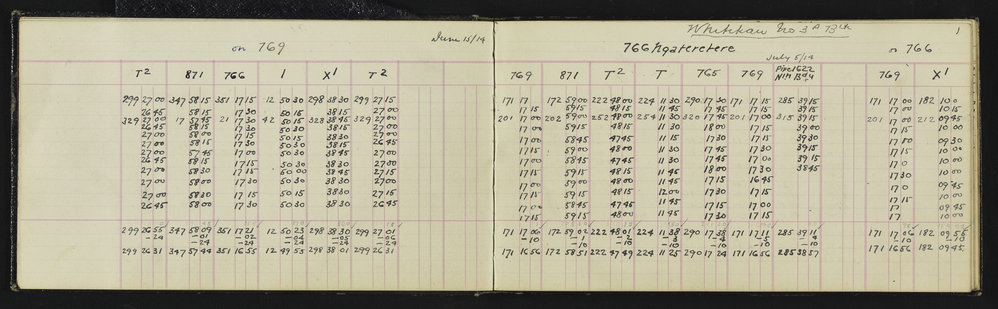 June 15/14
on 769
T² 871 766 1 X¹ T²
299 27 00 347 58 15 351 17 15 12 50 30 298 38 30 299 27 15
26 45 58 15 17 30 50 15 38 15 27 00
329 27 00 17 57 45 21 17 30 42 50 15 328 38 45 329 27 00
26 45 58 15 17 30 50 30 38 15 27 00
27 00 58 00 17 15 50 15 38 30 27 00
27 00 58 15 17 30 50 30 38 15 26 45
27 00 57 45 17 00 50 30 38 45 27 00
26 45 58 15 17 15 50 30 38 30 27 00
27 00 58 30 17 15 50 00 38 45 27 15
27 00 58 00 17 30 50 30 38 30 27 00
27 00 58 30 17 15 50 15 38 30 27 15
26 45 58 00 17 30 50 30 38 30 27 00
299 26 55 347 58 09 351 17 21 12 50 23 298 38 30 299 27 01
299 26 31 347 57 44 351 16 55 12 49 53 298 38 01 299 26 31
1
766 Ngateretere
on 766
July 5/14
769 871 T² T 765 769 769 X¹
171 17 172 59 00 222 48 00 224 11 30 290 17 30 171 17 15 285 39 15 171 17 00 182 10 0
17 15 59 15 48 15 11 45 17 45 17 15 39 15 17 00 10 15
201 17 00 202 59 00 252 48 00 254 11 30 320 17 45 201 17 00 315 39 15 201 17 00 212 09 45
17 15 59 15 48 15 11 30 18 00 17 15 39 00 17 15 10 00
17 00 58 45 47 45 11 15 17 30 17 15 39 00 17 00 09 30
17 15 59 15 48 00 11 45 17 45 17 30 39 15 17 15 10 00
17 00 58 45 47 45 11 30 17 45 17 00 39 15 17 0 10 00
17 15 59 15 48 15 11 45 18 00 17 30 38 45 17 30 10 00
17 00 59 00 48 00 11 45 17 15 16 45 17 0 09 45
17 15 59 15 48 15 12 00 17 30 17 15 17 15 10 00
17 00 58 45 47 45 11 45 17 15 17 00 17 09 45
17 15 59 15 48 00 11 45 17 30 17 15 17 10 00
171 17 06 172 59 02 222 48 01 224 11 38 290 17 38 171 17 11 285 39 11 171 17 06 182 09 55
171 16 56 172 58 51 222 47 49 224 11 25 290 17 24 171 16 56 285 38 57 171 16 56 182 09 45